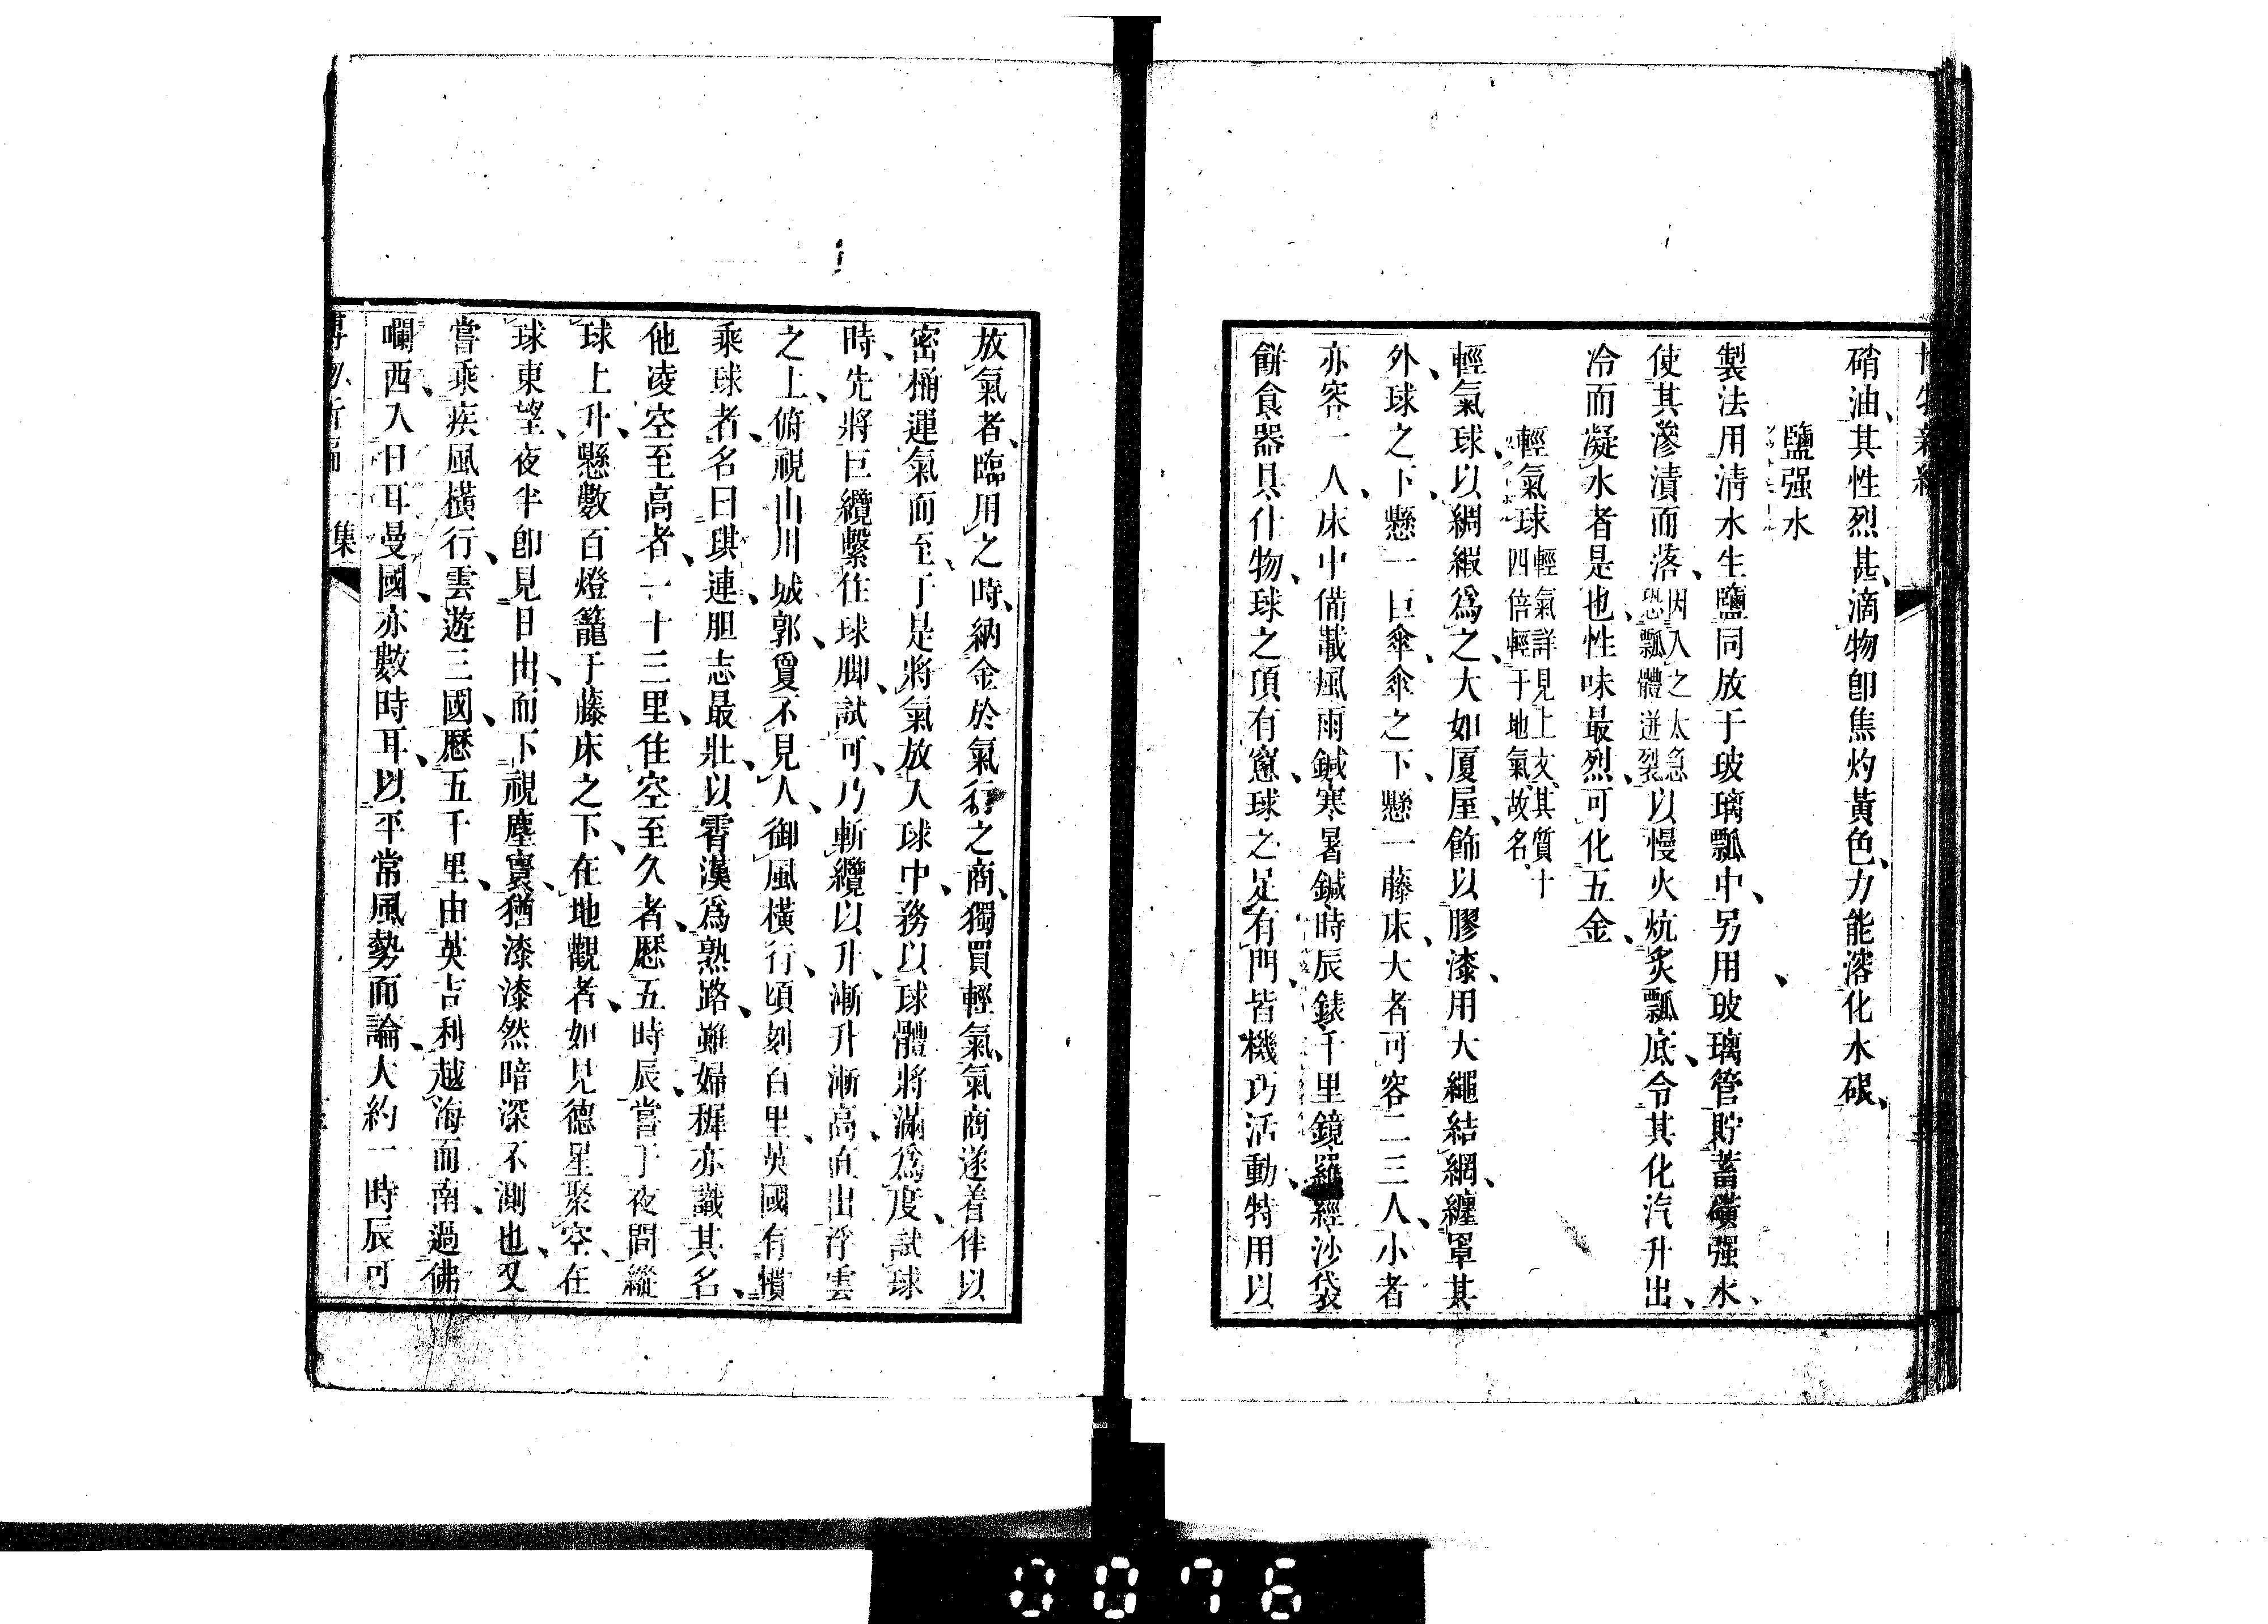 硝油、其性烈甚、滴物卽焦灼黃色、力能溶化水硍、
鹽强水
製法用淸水生鹽同放于玻璃瓢中、另用玻璃管貯蓄磺强水、
使其滲漬而落、因入之太急恐瓢體迸裂以慢火炕炙瓢底、令其化汽升出、
冷而凝水者是也、性味最烈、可化五金、
輕氣球 輕氣詳見上文、其質十四倍輕于地氣、故名、
輕氣球、以綢緞爲之、大如厦屋、飾以膠漆、用大繩結網、纏罩其
外、球之下、懸一巨傘、傘之下、懸一藤床、大者可容二三人、小者
亦容一人、床中備載風雨鍼寒暑鍼時辰錶千里鏡羅經沙袋
餅食器具什物、球之頂有窻、球之足有門、皆機巧活動、特用以
放氣者、臨用之時、納金於氣行之商、獨買輕氣、氣商遂着伴以
密桶運氣而至、于是將氣放入球中、務以球體將滿爲度、試球
時、先將巨纜繫住球脚、試可、乃斬纜以升、漸升漸高、直出浮雲
之上、俯視山川城郭、敻不見人、御風橫行、頃刻百里、英國有慣
乘球者、名曰琪連、胆志最壯、以霄漢爲熟路、雖婦穉亦識其名、
他凌空至高者、一十三里、住空至久者、歷五時辰、嘗于夜間縱
球上升、懸數百燈籠于藤床之下、在地觀者、如見德星聚空、在
球東望、夜半卽見日出、而下視塵寰、猶漆漆然暗深不測也、又
嘗乘疾風橫行、雲遊三國、歷五千里、由英吉利越海而南、過佛
囒西、入日耳曼國、亦數時耳、以平常風勢而論、大約一時辰可
集
0076